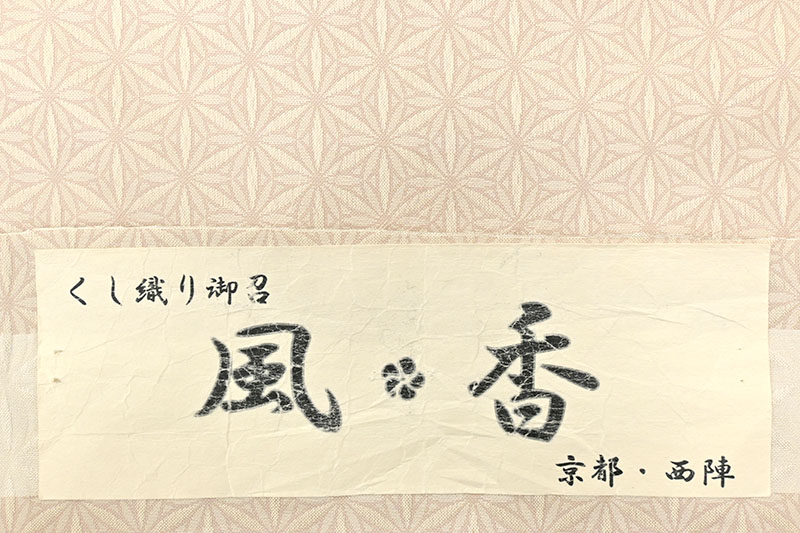 くし織り御召
風 香
京都・西陣